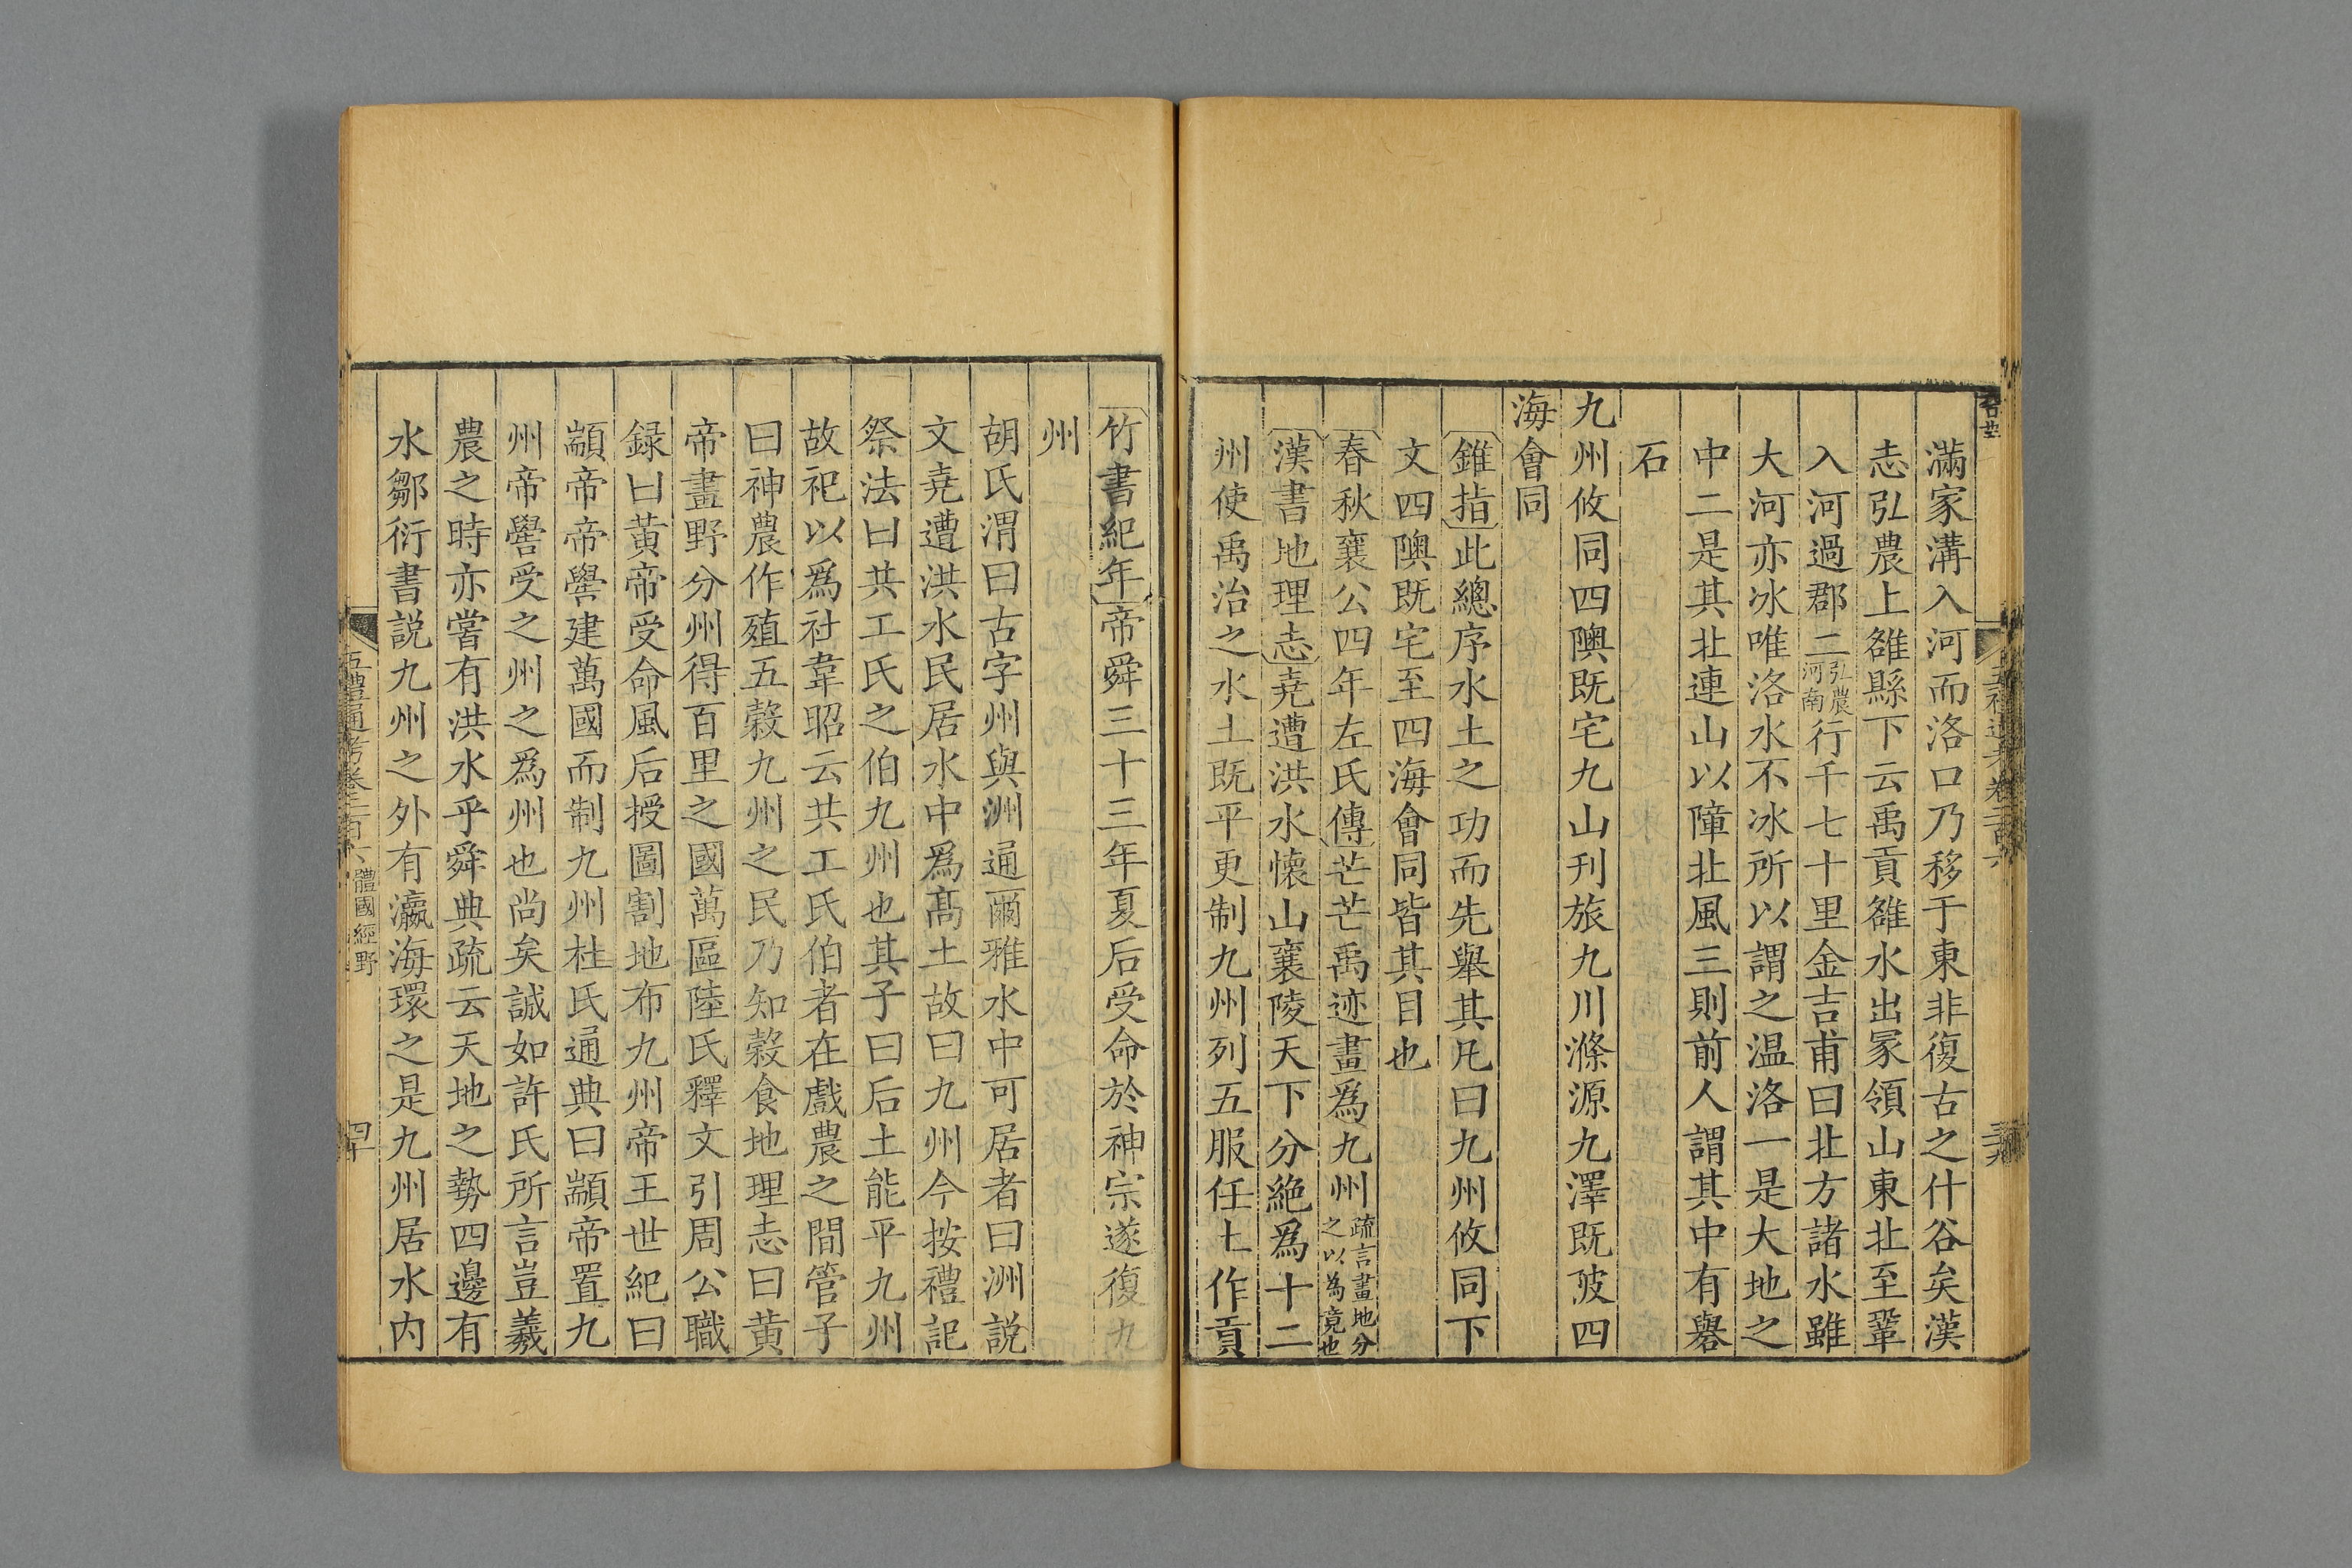 滿家溝入河而洛口乃移于東非復古之什谷矣漢
志弘農上雒縣下云禹貢雒水出冡領山東北至鞏
入河過郡二弘農河南行千七十里金吉甫曰北方諸水雖
大河亦冰唯洛水不冰所以謂之温洛一是大地之
中二是其北連山以障北風三則前人謂其中有礜
石
九州攸同四隩既宅九山刋旅九川滌源九澤既陂四
海會同
錐指此總序水土之功而先舉其凡曰九州攸同下
文四隩既宅至四海會同皆其目也
春秋襄公四年左氏傳芒芒禹迹畫爲九州疏言畫地分之以為竟也
漢書地理志堯遭洪水懷山襄陵天下分絶爲十二
州使禹治之水土既平更制九州列五服任土作貢
竹書紀年帝舜三十三年夏后受命於神宗遂復九
州
胡氏渭曰古字州與洲通爾雅水中可居者曰洲説
文堯遭洪水民居水中爲髙土故曰九州今按禮記
祭法曰共工氏之伯九州也其子曰后土能平九州
故祀以爲社韋昭云共工氏伯者在戲農之間管子
曰神農作殖五穀九州之民乃知穀食地理志曰黄
帝畫野分州得百里之國萬區陸氏釋文引周公職
録曰黄帝受命風后授圖割地布九州帝王世紀曰
顓帝帝嚳建萬國而制九州杜氏通典曰顓帝置九
州帝嚳受之州之爲州也尚矣誠如許氏所言豈羲
農之時亦嘗有洪水乎舜典疏云天地之勢四邊有
水鄒衍書説九州之外有瀛海環之是九州居水内
五禮通考卷二百六 體國經野
四十